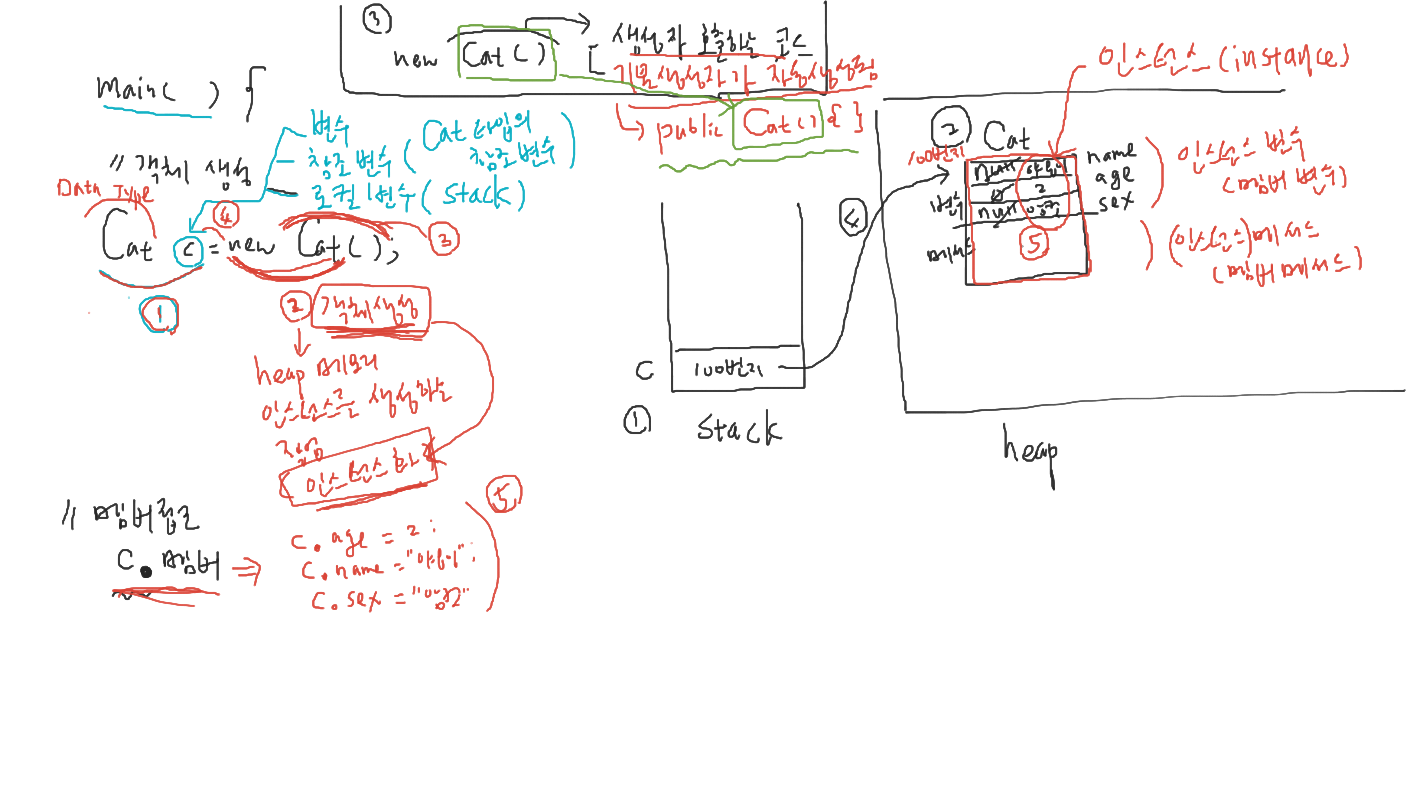 ③
new Cat( )
생성자 호출하는 코드
기본생성자가 자동생성됨
public Cat() { }
main( ) {
// 객체 생성
변수
참조변수 ( Cat 타입의 참조변수 )
로컬변수 ( stack )
Data Type
④
Cat c = new Cat( );
③
①
② 객체생성
heap 메모리
인스턴스를 생성하는
작업
인스턴스화
// 멤버접근
c.멤버 ⇒
⑤
c.age = 2;
c.name = "야옹이";
c.sex = "암컷"
c 100번지
① stack
④
인스턴스 (instance)
② Cat
100번지
null 야옹이 name
0 2 age
null 암컷 sex
변수
메서드
⑤
인스턴스 변수
(멤버 변수)
(인스턴스)메서드
(멤버메서드)
heap